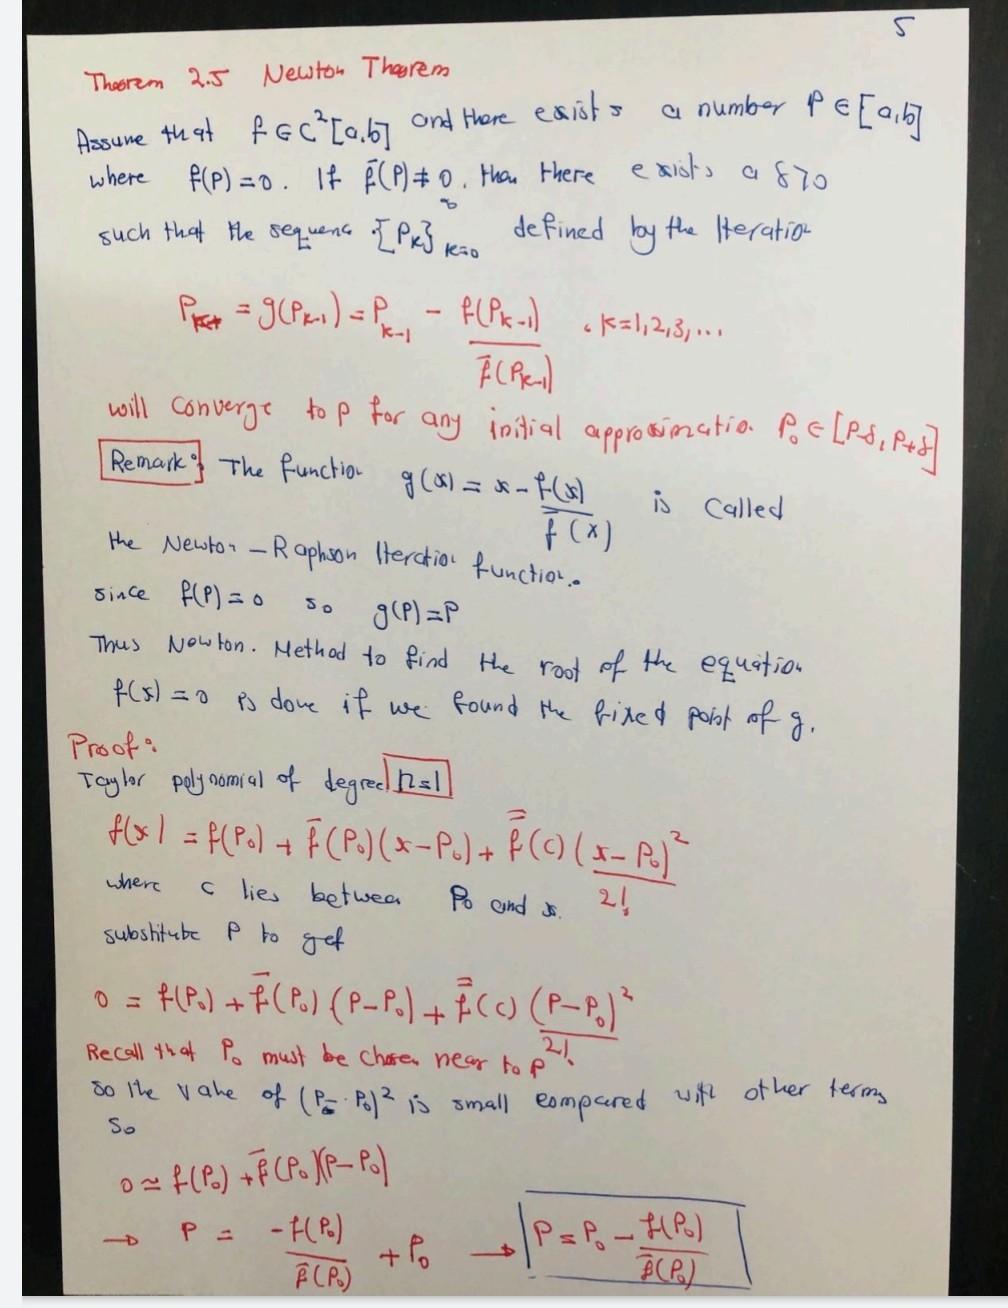 5
Theorem 2.5 Newton Theorem
Assume that f ∈ C²[a,b] and there exists a number P ∈ [a,b]
where f(P) = 0. If f̄(P) ≠ 0, then there exists a δ > 0
such that the sequence {P_k}_{k=0}^∞ defined by the Iteration
P_k = g(P_{k-1}) = P_{k-1} - f(P_{k-1}) / f̄(P_{k-1}) , k=1,2,3,...
will converge to p for any initial approximation P₀ ∈ [P-δ, P+δ]
Remark: The function g(x) = x - f(x) / f̄(x) is called
the Newton-Raphson Iteration function.
since f(P) = 0 so g(P) = P
Thus Newton. Method to find the root of the equation
f(x) = 0 is done if we found the fixed point of g.
Proof:
Taylor polynomial of degree n=1
f(x) = f(P₀) + f̄(P₀)(x-P₀) + f̿(c) (x-P₀)² / 2!
where c lies between P₀ and x.
substitute P to get
0 = f(P₀) + f̄(P₀)(P-P₀) + f̿(c) (P-P₀)² / 2!
Recall that P₀ must be chosen near to p
so the value of (P-P₀)² is small compared with other terms
So
0 ≃ f(P₀) + f̄(P₀)(P-P₀)
→ P = -f(P₀) / f̄(P₀) + P₀ → P = P₀ - f(P₀) / f̄(P₀)